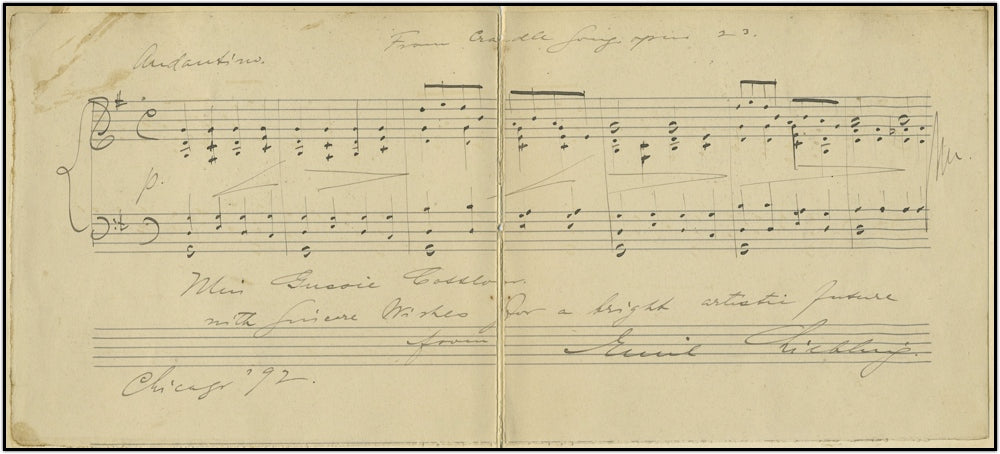 From Cradle Song, opus 23.
Andantino.
p.
Miss Gussie Cottlow.
with Sincere Wishes for a bright artistic future
from Emil Liebling.
Chicago '92.